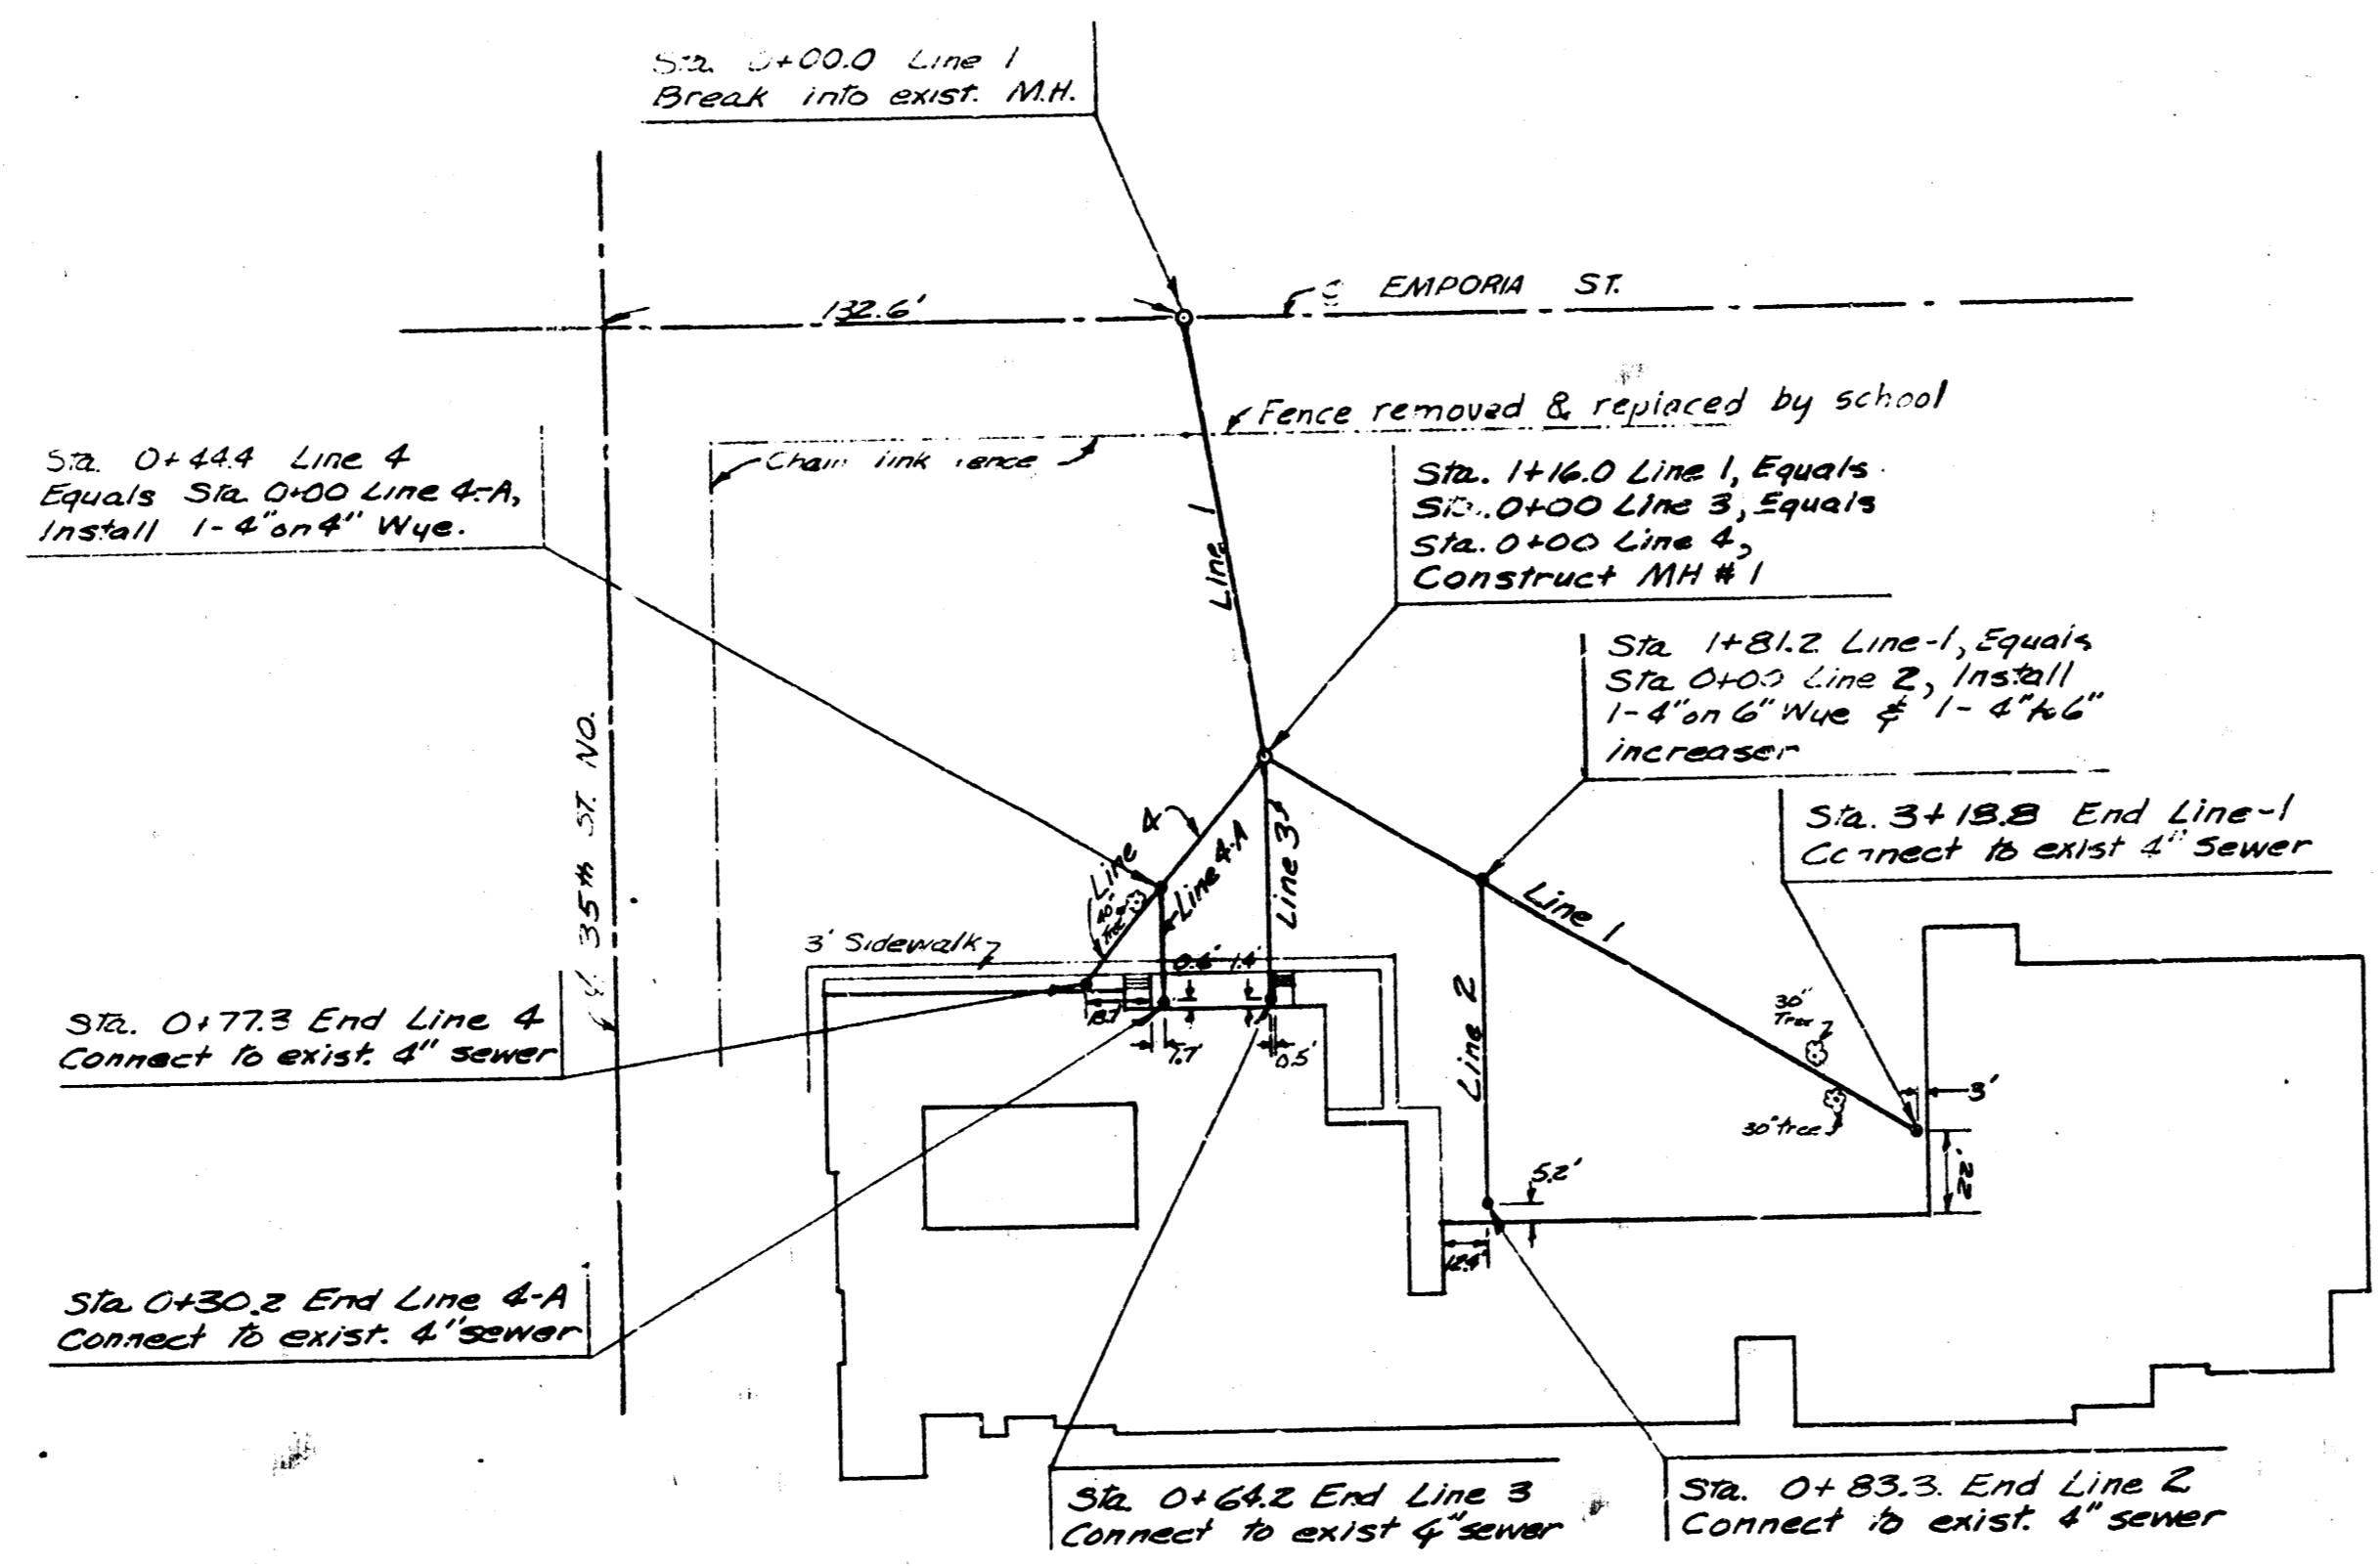 Sta. 0+00.0 Line 1
Break into exist. M.H.
132.6'
EMPORIA ST.
Fence removed & replaced by school
Chain link fence
Sta. 0+44.4 Line 4
Equals Sta. 0+00 Line 4-A,
Install 1-4" on 4" Wye.
Line 1
Sta. 1+16.0 Line 1, Equals
Sta. 0+00 Line 3, Equals
Sta. 0+00 Line 4,
Construct MH # 1
Sta 1+81.2 Line-1, Equals
Sta 0+00 Line 2, Install
1-4" on 6" Wye & 1-4" to 6"
increaser
35th ST. NO.
Sta. 3+18.8 End Line-1
Connect to exist 4" Sewer
Line 4
Line 4-A
Line 3
Line 1
Tree
3' Sidewalk
0.6' 1.4'
18.7'
1.7'
0.5'
Line 2
30" Tree
30" tree
3'
22'
5.2'
12.4'
Sta. 0+77.3 End Line 4
Connect to exist. 4" sewer
Sta 0+30.2 End Line 4-A
Connect to exist. 4" sewer
Sta. 0+64.2 End Line 3
Connect to exist 4" sewer
Sta. 0+83.3. End Line 2
Connect to exist. 4" sewer